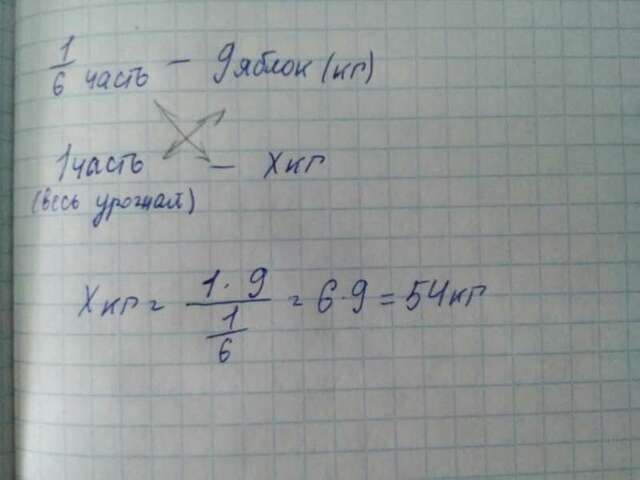 1/6 часть — 9 яблок (кг)
1 часть — X кг
(весь урожай)
X кг = (1 · 9)/(1/6) = 6 · 9 = 54 кг